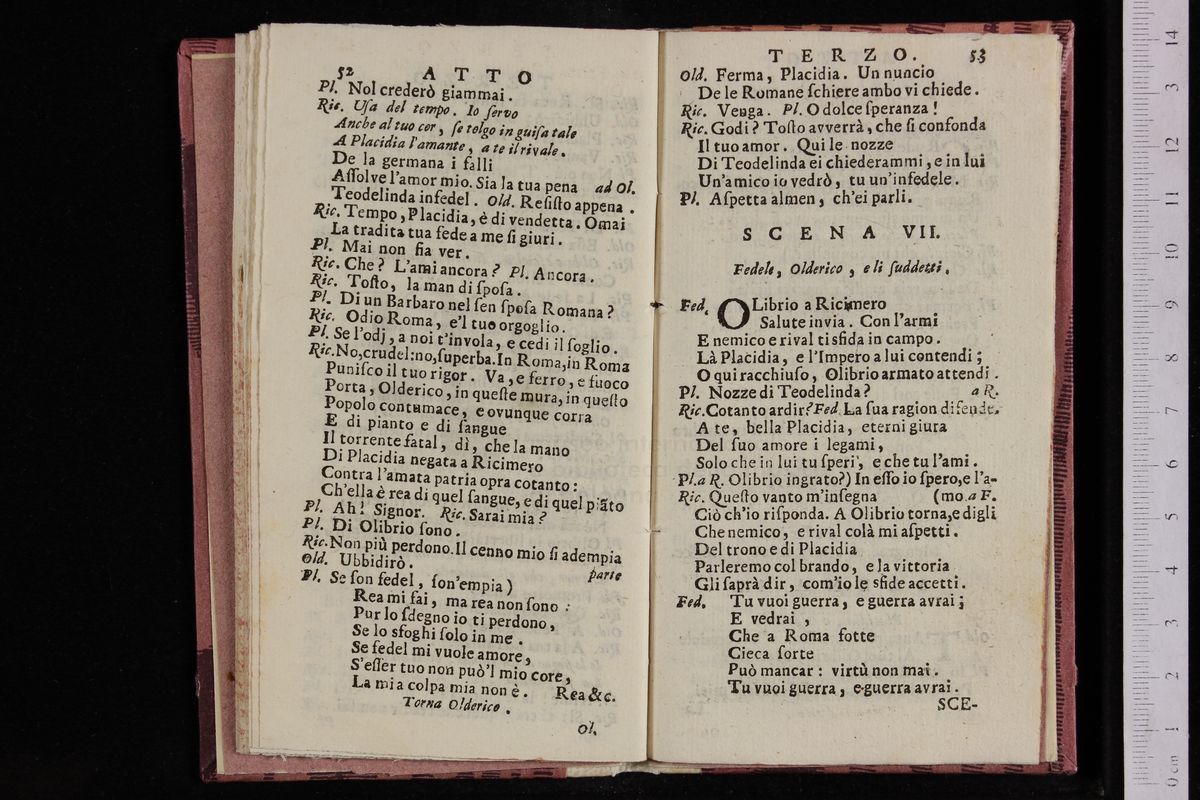 52 ATTO
Pl. Nol crederò giammai.
Ric. Uſa del tempo. Io ſervo
Anche al tuo cor, ſe tolgo in guiſa tale
A Placidia l'amante, a te il rivale.
De la germana i falli
Aſſolve l'amor mio. Sia la tua pena ad Ol.
Teodelinda infedel. Old. Reſiſto appena.
Ric. Tempo, Placidia, è di vendetta. Omai
La tradita tua fede a me ſi giuri.
Pl. Mai non fia ver.
Ric. Che? L'ami ancora? Pl. Ancora.
Ric. Toſto, la man di ſpoſa.
Pl. Di un Barbaro nel ſen ſpoſa Romana?
Ric. Odio Roma, e'l tuo orgoglio.
Pl. Se l'odj, a noi t'invola, e cedi il ſoglio.
Ric. No, crudel: no, ſuperba. In Roma, in Roma
Puniſco il tuo rigor. Va, e ferro, e fuoco
Porta, Olderico, in queſte mura, in queſto
Popolo contumace, e ovunque corra
E di pianto e di ſangue
Il torrente fatal, dì, che la mano
Di Placidia negata a Ricimero
Contra l'amata patria opra cotanto:
Ch'ella è rea di quel ſangue, e di quel piãto
Pl. Ah! Signor. Ric. Sarai mia?
Pl. Di Olibrio ſono.
Ric. Non più perdono. Il cenno mio ſi adempia
Old. Ubbidirò. parte
Pl. Se ſon fedel, ſon'empia)
Rea mi fai, ma rea non ſono:
Pur lo ſdegno io ti perdono,
Se lo sfoghi ſolo in me.
Se fedel mi vuole amore,
S'eſſer tuo non può'l mio core,
La mia colpa mia non è. Rea &c.
Torna Olderico.
Ol.
TERZO. 53
Old. Ferma, Placidia. Un nuncio
De le Romane ſchiere ambo vi chiede.
Ric. Venga. Pl. O dolce ſperanza!
Ric. Godi? Toſto avverrà, che ſi confonda
Il tuo amor. Qui le nozze
Di Teodelinda ei chiederammi, e in lui
Un'amico io vedrò, tu un'infedele.
Pl. Aſpetta almen, ch'ei parli.
SCENA VII.
Fedele, Olderico, e li ſuddetti.
Fed. OLibrio a Ricimero
Salute invia. Con l'armi
E nemico e rival ti sfida in campo.
Là Placidia, e l'Impero a lui contendi;
O qui racchiuſo, Olibrio armato attendi.
Pl. Nozze di Teodelinda? a R.
Ric. Cotanto ardir? Fed. La ſua ragion difende.
A te, bella Placidia, eterni giura
Del ſuo amore i legami,
Solo che in lui tu ſperi, e che tu l'ami.
Pl. a R. Olibrio ingrato?) In eſſo io ſpero, e l'a-
Ric. Queſto vanto m'inſegna (mo. a F.
Ciò ch'io riſponda. A Olibrio torna, e digli
Che nemico, e rival colà mi aſpetti.
Del trono e di Placidia
Parleremo col brando, e la vittoria
Gli ſaprà dir, com'io le sfide accetti.
Fed. Tu vuoi guerra, e guerra avrai;
E vedrai,
Che a Roma fotte
Cieca ſorte
Può mancar: virtù non mai.
Tu vuoi guerra, e guerra avrai.
SCE-